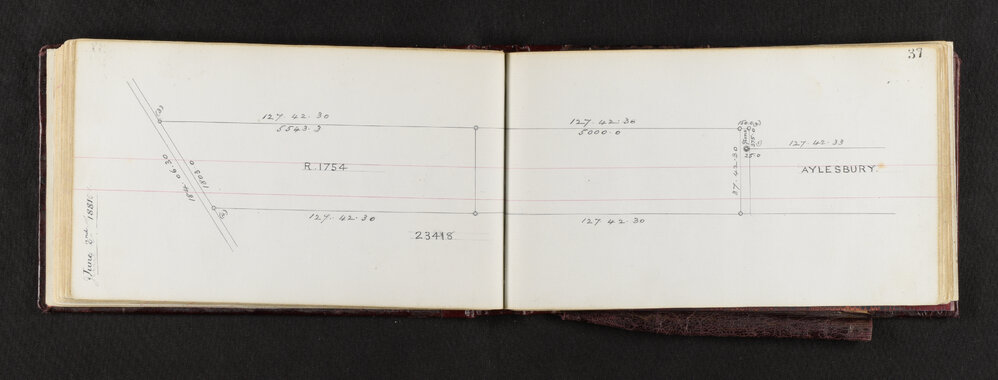 37
127. 42. 30
5543.3
R. 1754
184. 06. 30
1803.0
127. 42. 30
23418
June 2nd 1881.
127. 42. 30
5000.0
37. 42. 30
25.0
127. 42. 33
AYLESBURY.
127. 42. 30